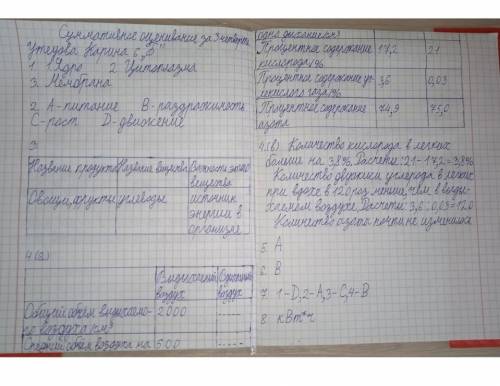 Суммативное оценивание за 3 четверть
Утедова Карина 6 „Б"
1. 1 Ядро 2 Цитоплазма
3. Мембрана
2. А-питание В-раздражимость
С-рост D-движение
3
Название продукта Название вещества Важность этого вещества
Овощи, фрукты углеводы источник энергии в организме
4(а)
воздух воздух
Общий объём
го воздуха см³ 2000 -----
Средний объём воздуха на 500 -----
одно дыхание см³
Процентное содержание кислорода % 17,2 21
Процентное содержание уг-
лекислого газа % 3,6 0,03
Процентное содержание азота 74,9 75,0
4.(в). Количество кислорода в легких
больше на 3,8%. Расчеты: 21-17,2=3,8%
Количество двуокиси углерода в легких
при вдохе в 120 раз меньше, чем в выды-
хаемом воздухе. Расчеты: 3,6:0,03=120
Количество азота почти не изменилось
5. А
6. В
7. 1-D, 2-А, 3-С, 4-В
8. кВт*ч